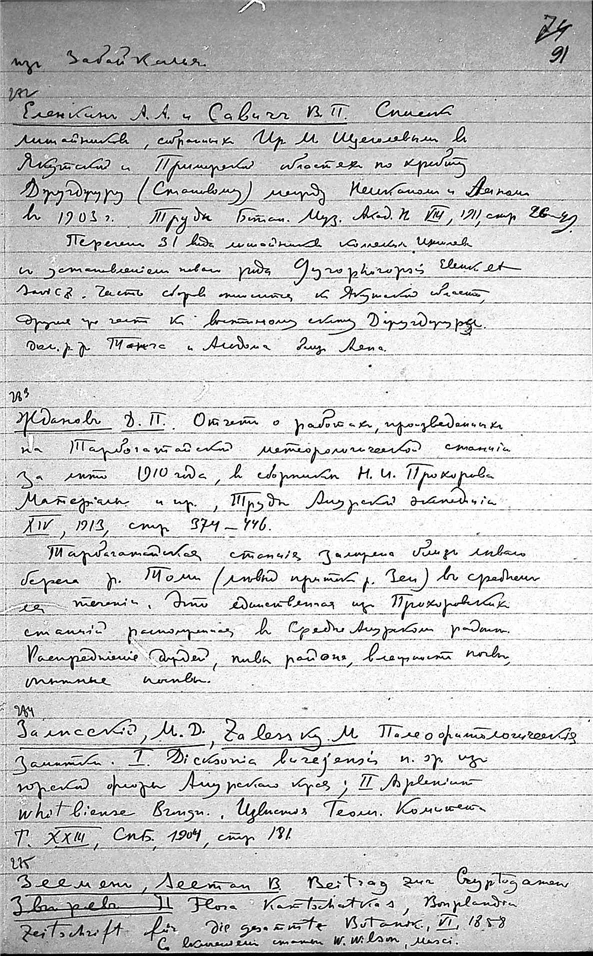 74
91
из Забайкалья.
282
Еленкинъ А. А. и Савичъ В. П. Списокъ
лишайников, собранных Ир. М. Щеголевым в
Якутской и Приморской областях по хребту
Джугджуру (Становому) между Нельканом и Аяном
в 1903 г. Труды Ботан. Муз. Акад. Н. VIII, 1911, стр 26-
Перечень 31 вида лишайников
с установлением новаго рода Gyrophoropsis Elenk et
Savicz. Часть сборов относится к Якутской области,
другие же части к восточному склону Джугджура.
близ Аяна.
283
Ждановъ Д. П. Отчетъ о работах, произведенных
на Тарбогатайской метеорологической станции
за лето 1910 года, в сборнике Н. И. Прохорова
Матерiалы и пр, Труды Амурской экспедиции
XIV, 1913, стр 374-446.
Тарбагатайская станцiя близ леваго
берега р. Томи (левый приток р. Зеи) в среднем
ея теченiи. Это единственная из Прохоровских
станцiй расположенная в Средне Амурском районе.
Распределенiе дождей, района, влажность почвы,
284
Залесскiй, М. D., Zalessky. M Палеофитологическiя
Заметки. I. Dicksonia burejensis n. sp. из
юрской флоры Амурскаго края; II Asplenium
whitbiense Brongn., Известия Геол. Комитета
Т. XXIII, СПБ, 1904, стр 181
285
Зееменъ, Seeman B Beitrag zur Cryptogamen
II Flora Kamtschatkas, Bonplandia
Zeitschrift für die gesammte Botanik, VI, 1858
W. Wilson, Musci.